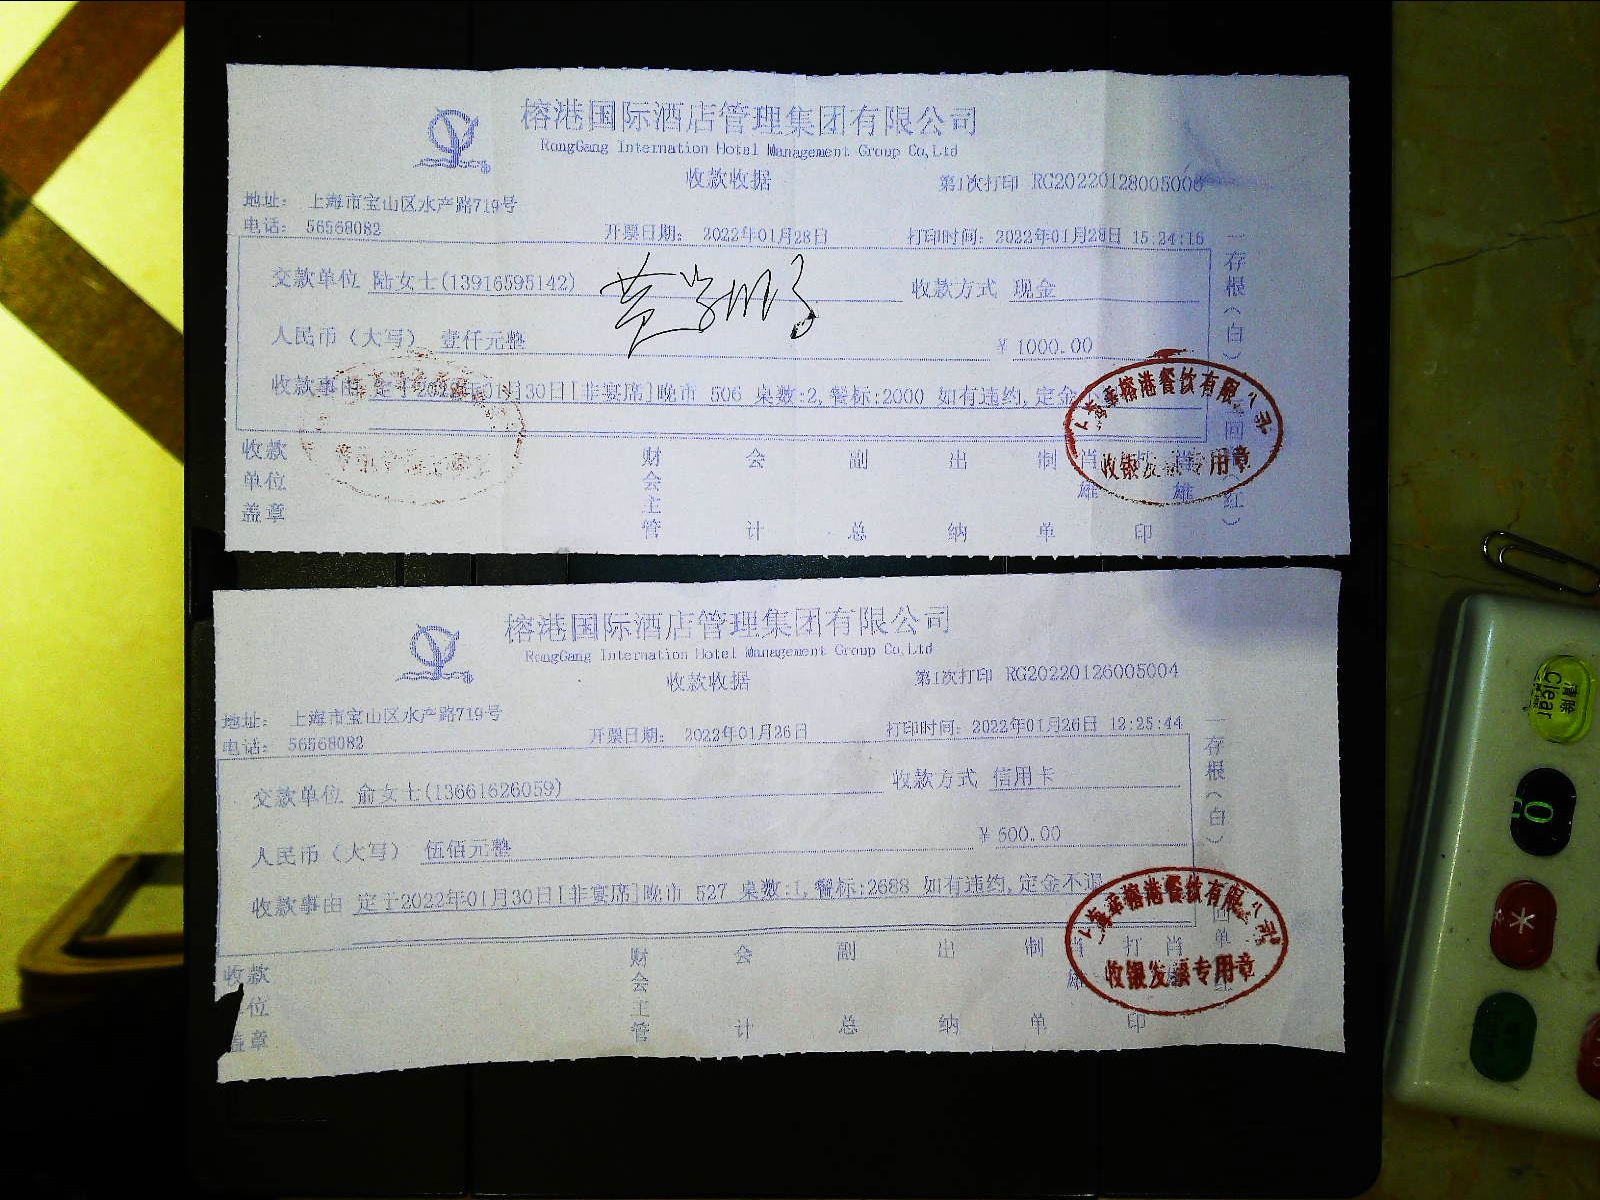 榕港国际酒店管理集团有限公司
RongGang Internation Hotel Management Group Co,Ltd
收款收据
第1次打印 RG20220128005006
地址： 上海市宝山区水产路719号
电话： 56568082
开票日期： 2022年01月28日
打印时间：2022年01月28日 15:24:16
交款单位 陆女士(13916595142)
收款方式 现金
人民币（大写） 壹仟元整
¥ 1000.00
收款事由 定于2022年01月30日[非宴席]晚市 506 桌数:2,餐标:2000 如有违约,定金
存根（白）
收款单位盖章
财会主管
会计
副总
出纳
制单
肖雄
打印
肖雄
上海季榕港餐饮有限公司
收银发票专用章
榕港国际酒店管理集团有限公司
RongGang Internation Hotel Management Group Co,Ltd
收款收据
第1次打印 RG20220126005004
地址： 上海市宝山区水产路719号
电话： 56568082
开票日期： 2022年01月26日
打印时间：2022年01月26日 12:25:44
交款单位 俞女士(13661626059)
收款方式 信用卡
人民币（大写） 伍佰元整
¥ 500.00
收款事由 定于2022年01月30日[非宴席]晚市 527 桌数:1,餐标:2688 如有违约,定金不退
存根（白）
收款
位
盖章
财会主管
会计
副总
出纳
制单
打印
肖
上海季榕港餐饮有限公司
收银发票专用章
清除
Clear
0
*